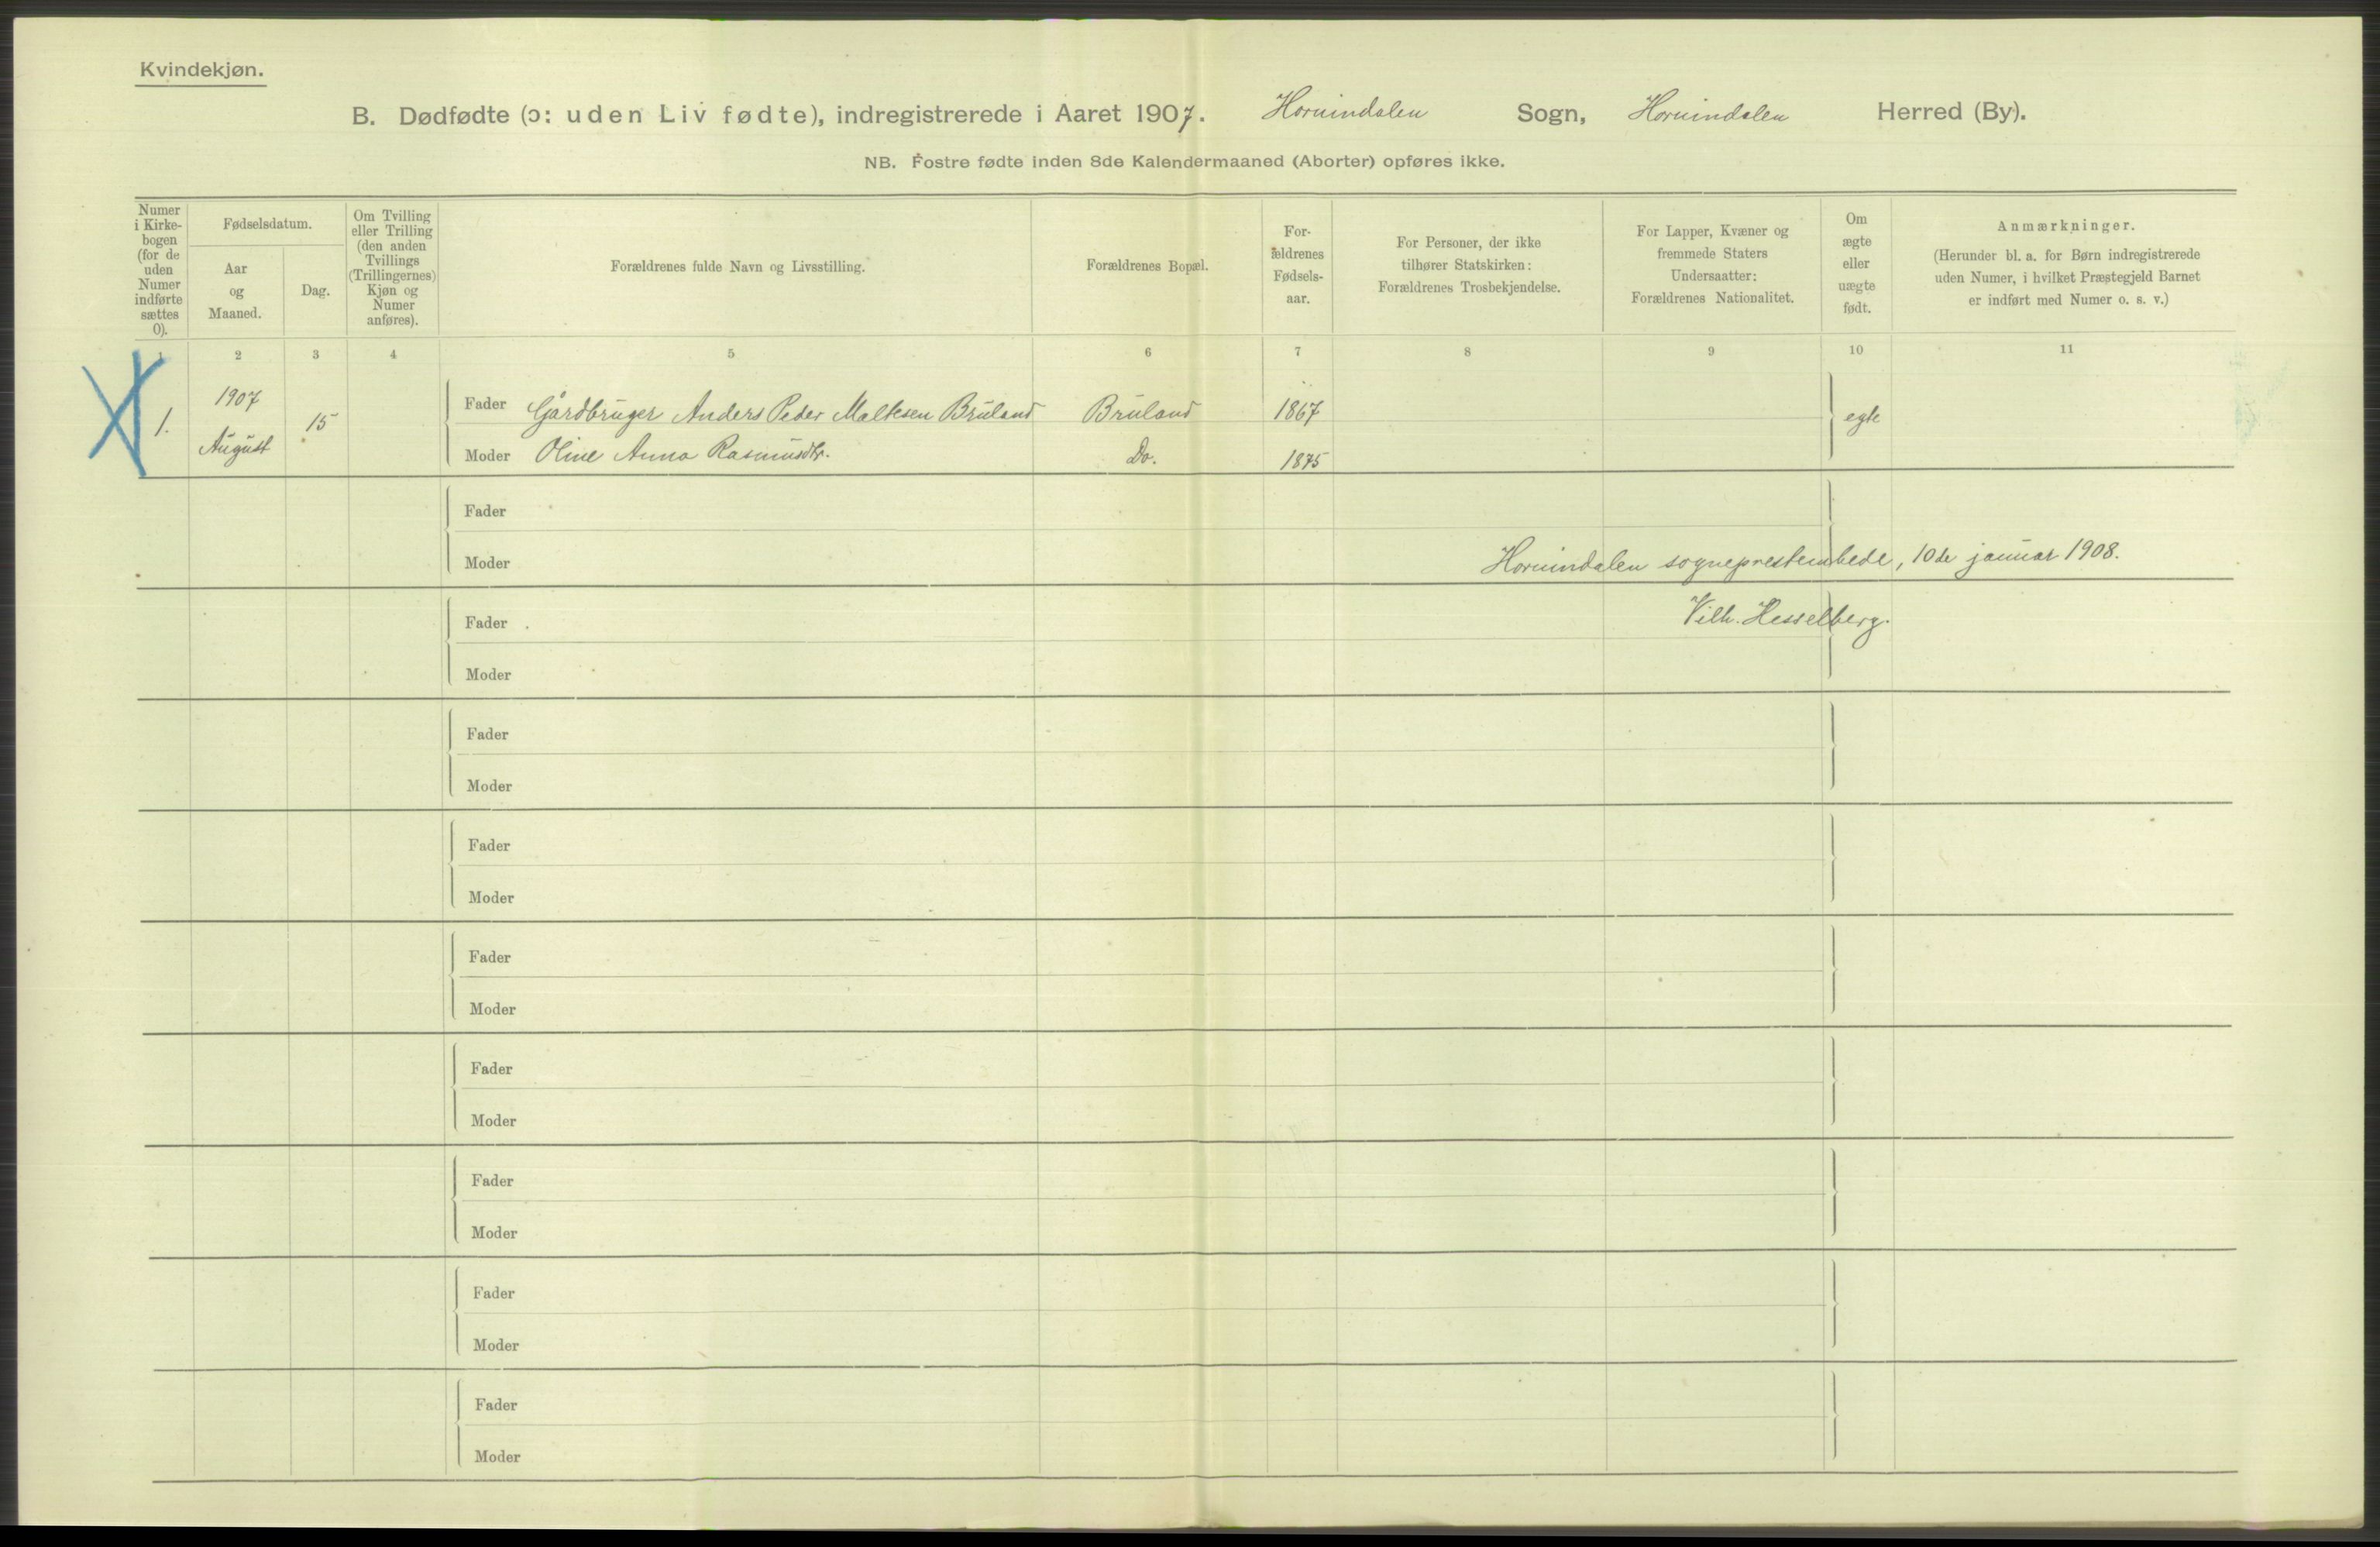 Kvindekjøn.
B. Dødfødte (ɔ: uden Liv fødte), indregistrerede i Aaret 1907. Hornindalen Sogn, Hornindalen Herred (By).
NB. Fostre fødte inden 8de Kalendermaaned (Aborter) opføres ikke.
Numer
i Kirke-
bogen
(for de
uden
Numer
indførte
sættes
0).
Fødselsdatum.
Aar
og
Maaned.
Dag.
Om Tvilling
eller Trilling
(den anden
Tvillings
(Trillingernes)
Kjøn og
Numer
anføres).
Forældrenes fulde Navn og Livsstilling.
Forældrenes Bopæl.
For-
ældrenes
Fødsels-
aar.
For Personer, der ikke
tilhører Statskirken:
Forældrenes Trosbekjendelse.
For Lapper, Kvæner og
fremmede Staters
Undersaatter:
Forældrenes Nationalitet.
Om
ægte
eller
uægte
født.
Anmærkninger.
(Herunder bl. a. for Børn indregistrerede
uden Numer, i hvilket Præstegjeld Barnet
er indført med Numer o. s. v.)
1 2 3 4 5 6 7 8 9 10 11
1. 1907 August 15
Fader Gårdbruger Anders Peder Maltesen Bruland Bruland 1867 egte
Moder Oline Anna Rasmusdtr. Do. 1875
Fader
Moder Hornindalen sogneprestembede, 10de januar 1908.
Vilh. Hesselberg.
Fader
Moder
Fader
Moder
Fader
Moder
Fader
Moder
Fader
Moder
Fader
Moder
Fader
Moder
Fader
Moder